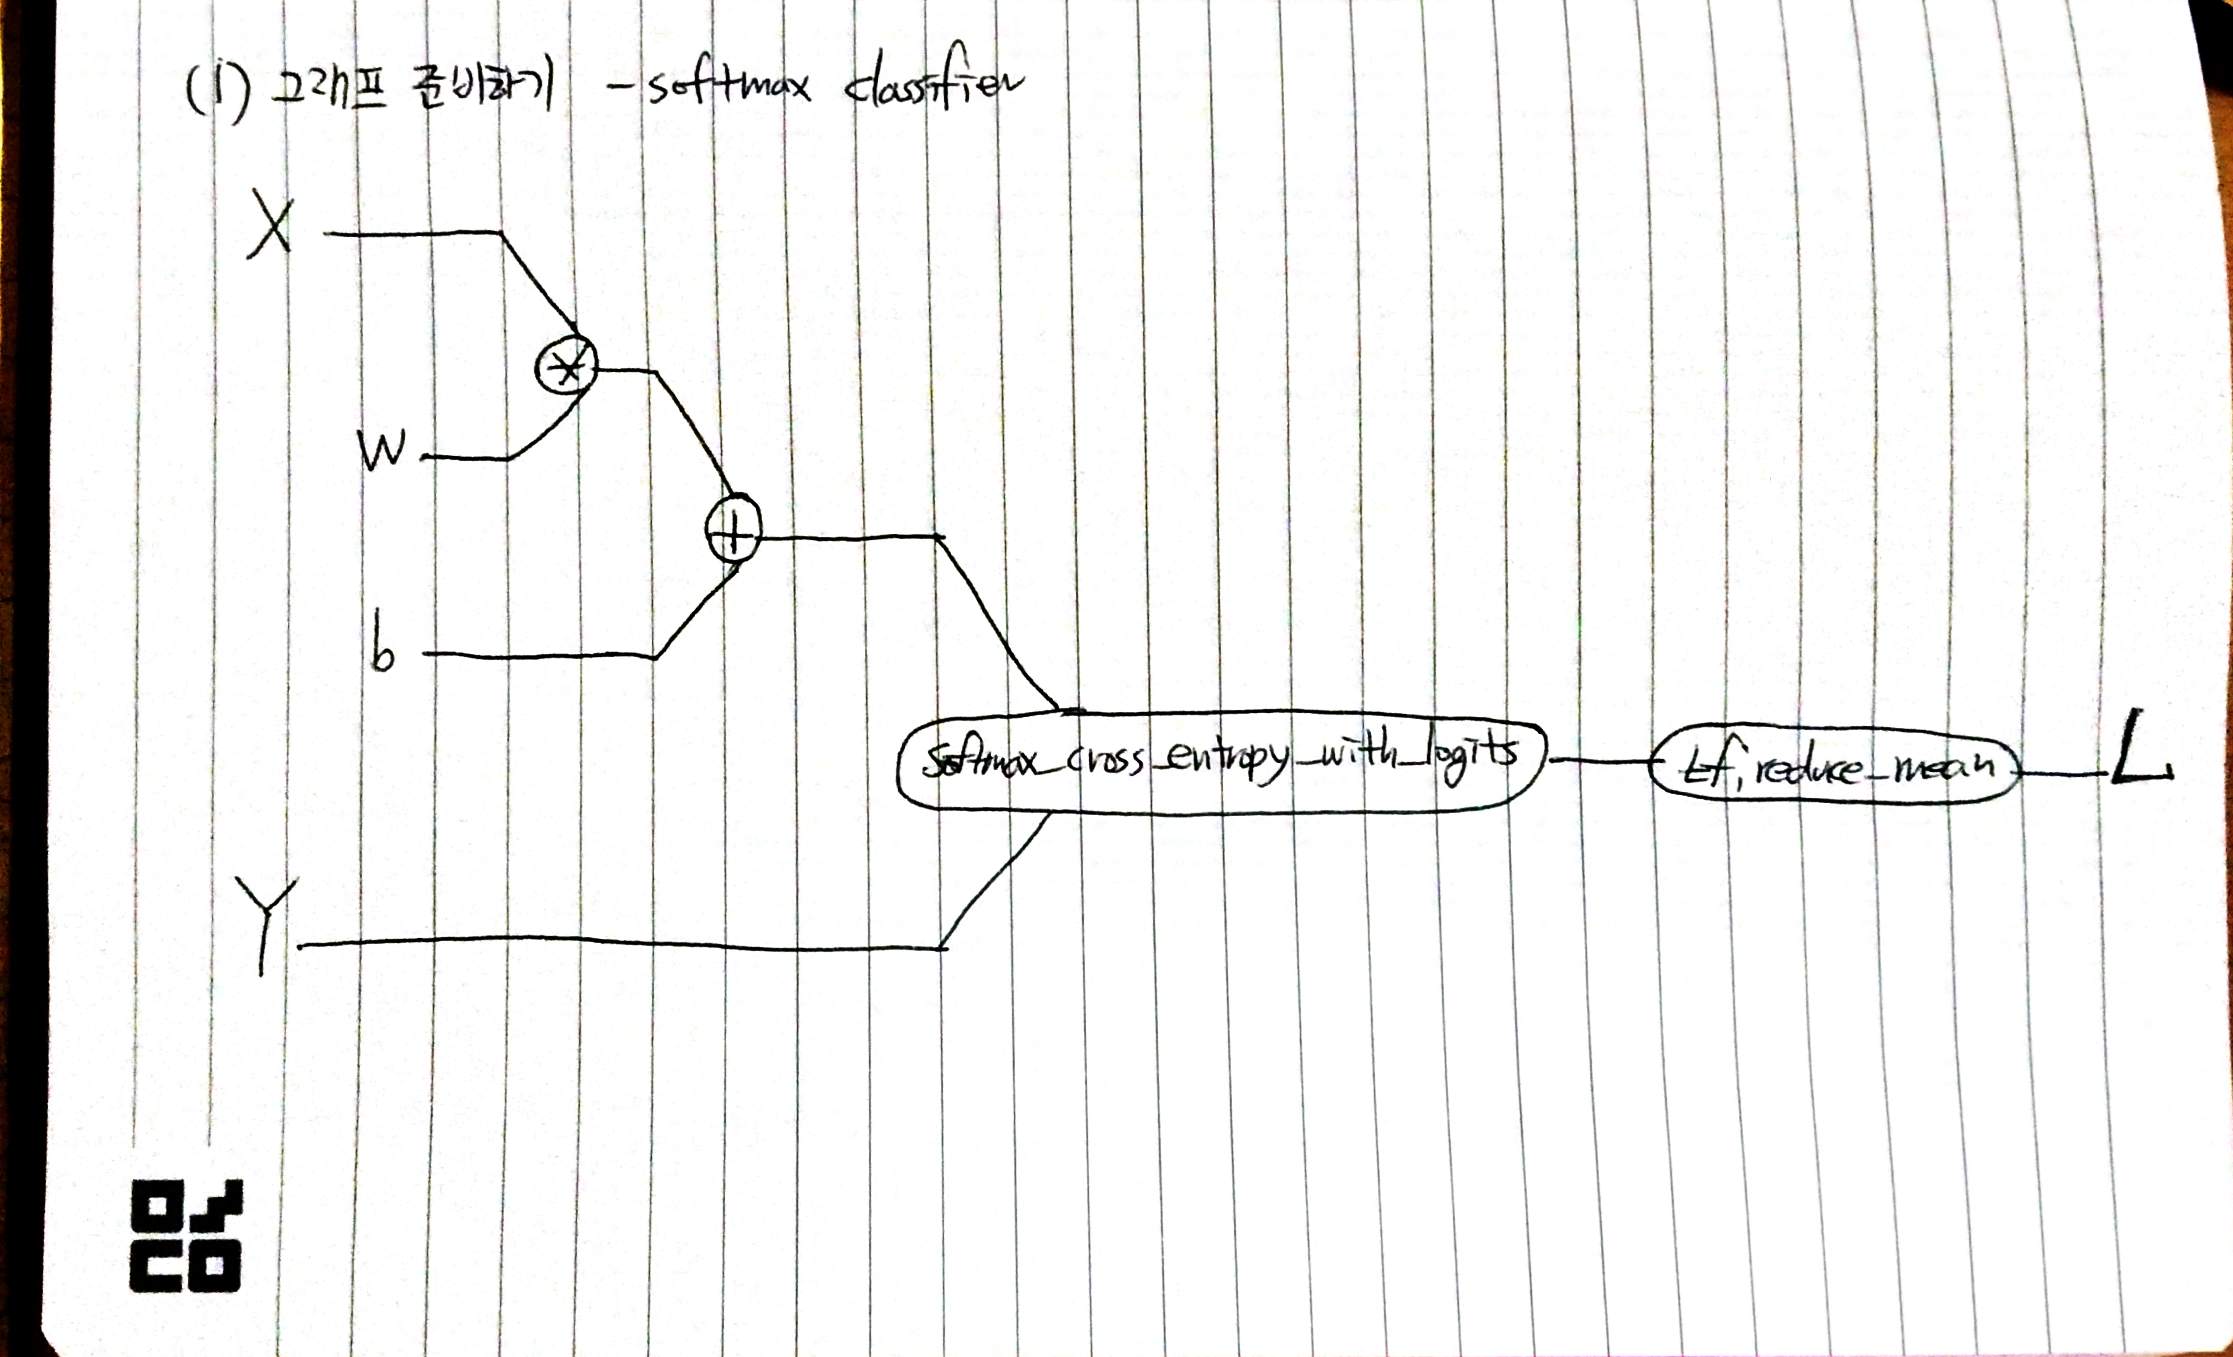 (1) 그래프 준비하기 - softmax classifier
X
*
W
+
b
softmax_cross_entropy_with_logits
tf.reduce_mean
L
Y